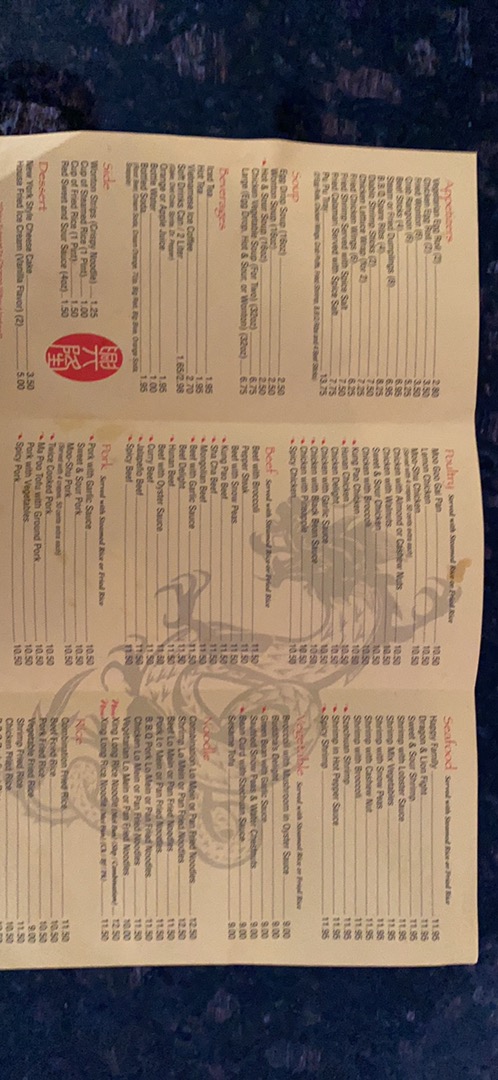 Appetizers
Vegetarian Egg Roll (2) 2.80
Chicken Egg Roll (2) 3.50
Fried Wonton (8) 3.50
Crab Puffs (6) 5.25
Beef Sticks (4) 6.95
Steam or Fried Dumplings (8) 6.95
B.B.Q Spare Ribs (4) 8.25
Diablo Shrimp Sticks (2) 7.50
Chicken Lettuce Wrap (for 2) 7.25
Fried Chicken Wings (6) 6.25
Fried Shrimp Served with Spice Salt 7.50
Fried Calamari Served with Spice Salt 7.75
Pu Pu Tray 13.75
Soup
Egg Drop Soup (16oz) 2.50
Wonton Soup (16oz) 2.50
Hot & Sour Soup (16oz) 2.50
Chicken Vegetable Soup (For Two) (32oz) 6.75
Large (Egg Drop, Hot & Sour, or Wonton) (32oz) 6.75
Beverages
Iced Tea 1.95
Hot Tea 1.95
Vietnamese Ice Coffee 2.70
Soft Drinks Can / 2 Liter 1.65/2.98
Orange or Apple Juice 1.95
Bottle Water 1.00
Bottled Soda 1.95
Side
Wonton Strips (Crispy Noodle) 1.25
Cup of Steamed Rice (1 Pint) 1.00
Cup of Fried Rice (1 Pint) 1.50
Red Sweet and Sour Sauce (4oz) 1.50
興大隆
Dessert
New York Style Cheese Cake 3.50
House Fried Ice Cream (Vanilla Flavor) (2) 5.00
Poultry Served with Steamed Rice or Fried Rice
Moo Goo Gai Pan 10.50
Lemon Chicken 10.50
Moo-Shu Chicken 10.50
Chicken with Almond or Cashew Nuts 10.50
Chicken with Walnuts 10.50
Sweet & Sour Chicken 10.50
Chicken with Broccoli 10.50
Kung Pao Chicken 10.50
Hunan Chicken 10.50
Chicken Delight 10.50
Chicken with Garlic Sauce 10.50
Chicken with Black Bean Sauce 10.50
Chicken with Pineapple 10.50
Spicy Chicken 10.50
Beef Served with Steamed Rice or Fried Rice
Beef with Broccoli 11.50
Pepper Steak 11.50
Beef with Snow Peas 11.50
Kung Pao Beef 11.50
Sha Cha Beef 11.50
Mongolian Beef 11.50
Beef with Garlic Sauce 11.50
Beef Delight 11.50
Hunan Beef 11.50
Beef with Oyster Sauce 11.50
Curry Beef 11.50
Jalapeño Beef 11.50
Spicy Beef 11.50
Pork Served with Steamed Rice or Fried Rice
Pork with Garlic Sauce 10.50
Sweet & Sour Pork 10.50
Moo-Shu Pork 10.50
Twice Cooked Pork 10.50
Ma Poo Tofu with Ground Pork 10.50
Pork with Vegetables 10.50
Spicy Pork 10.50
Seafood Served with Steamed Rice or Fried Rice
Happy Family 11.95
Dragon & Lion Fight 11.95
Sweet & Sour Shrimp 11.95
Shrimp with Lobster Sauce 11.95
Shrimp Mix Vegetables 11.95
Shrimp with Snow Peas 11.95
Shrimp with Cashew Nut 11.95
Shrimp with Broccoli 11.95
Szechuan Shrimp 11.95
Shrimp in Hot Pepper Sauce 11.95
Spicy Shrimp 11.95
Vegetable Served with Steamed Rice or Fried Rice
Broccoli with Mushroom in Oyster Sauce 9.00
Buddha's Delight 9.00
Green Bean with Garlic Sauce 9.00
Sauteed Snow Peas & Water Chestnuts 9.00
Bean Curd with Szechuan Sauce 9.00
Sesame Tofu 9.00
Noodle
Combination Lo Mein or Pan Fried Noodles 12.50
Shrimp Lo Mein or Pan Fried Noodles 12.50
Beef Lo Mein or Pan Fried Noodles 11.50
Pork Lo Mein or Pan Fried Noodles 11.50
B.B.Q Pork Lo Mein or Pan Fried Noodles 11.50
Chicken Lo Mein or Pan Fried Noodles 11.50
Vegetable Lo Mein or Pan Fried Noodles 10.00
Xing Long Rice Noodle 12.50
Xing Long Rice Noodle 11.50
Rice
Combination Fried Rice 11.50
Beef Fried Rice 10.50
Pork Fried Rice 10.50
Vegetable Fried Rice 9.00
Shrimp Fried Rice 11.50
Chicken Fried Rice 10.50